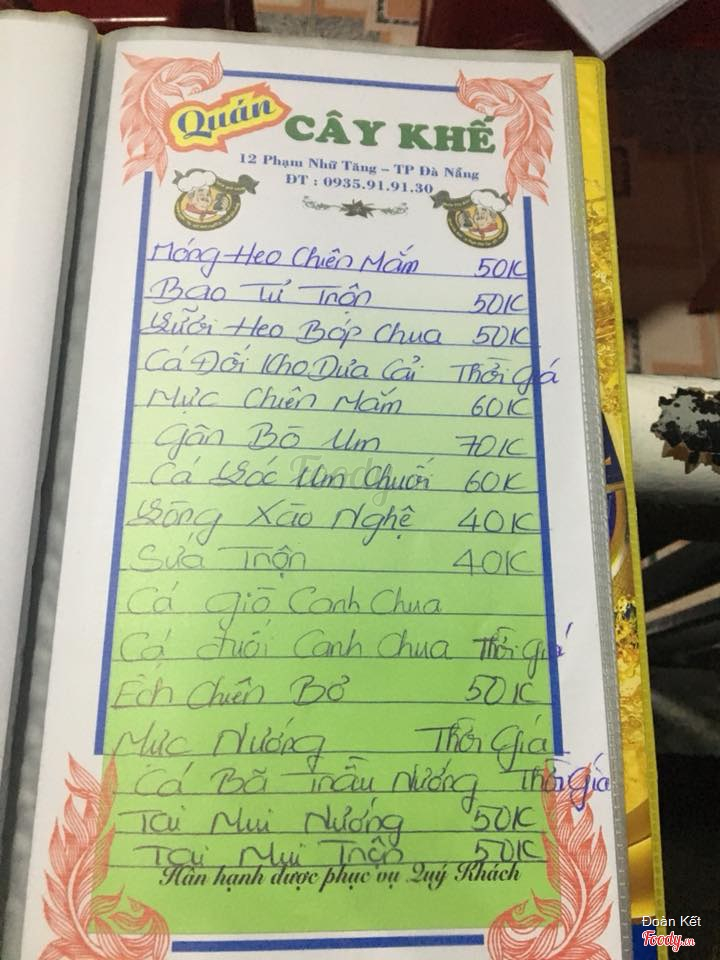 Quán
CÂY KHẾ
12 Phạm Nhữ Tăng – TP Đà Nẵng
ĐT : 0935.91.91.30
Móng Heo Chiên Mắm 50K
Bao Tử Trộn 50K
Lưỡi Heo Bóp Chua 50K
Cá Đối Kho Dưa Cải Thời Giá
Mực Chiên Mắm 60K
Gân Bò Um 70K
Cá Lóc Um Chuối 60K
Lòng Xào Nghệ 40K
Sứa Trộn 40K
Cá Giò Canh Chua
Cá Đuối Canh Chua Thời Giá
Ếch Chiên Bơ 50K
Mực Nướng Thời Giá
Cá Bã Trầu Nướng Thời Giá
Tai Mui Nướng 50K
Tai Mui Trộn 50K
Hân hạnh được phục vụ Quý Khách
Foody
Đoàn Kết
Foody.vn